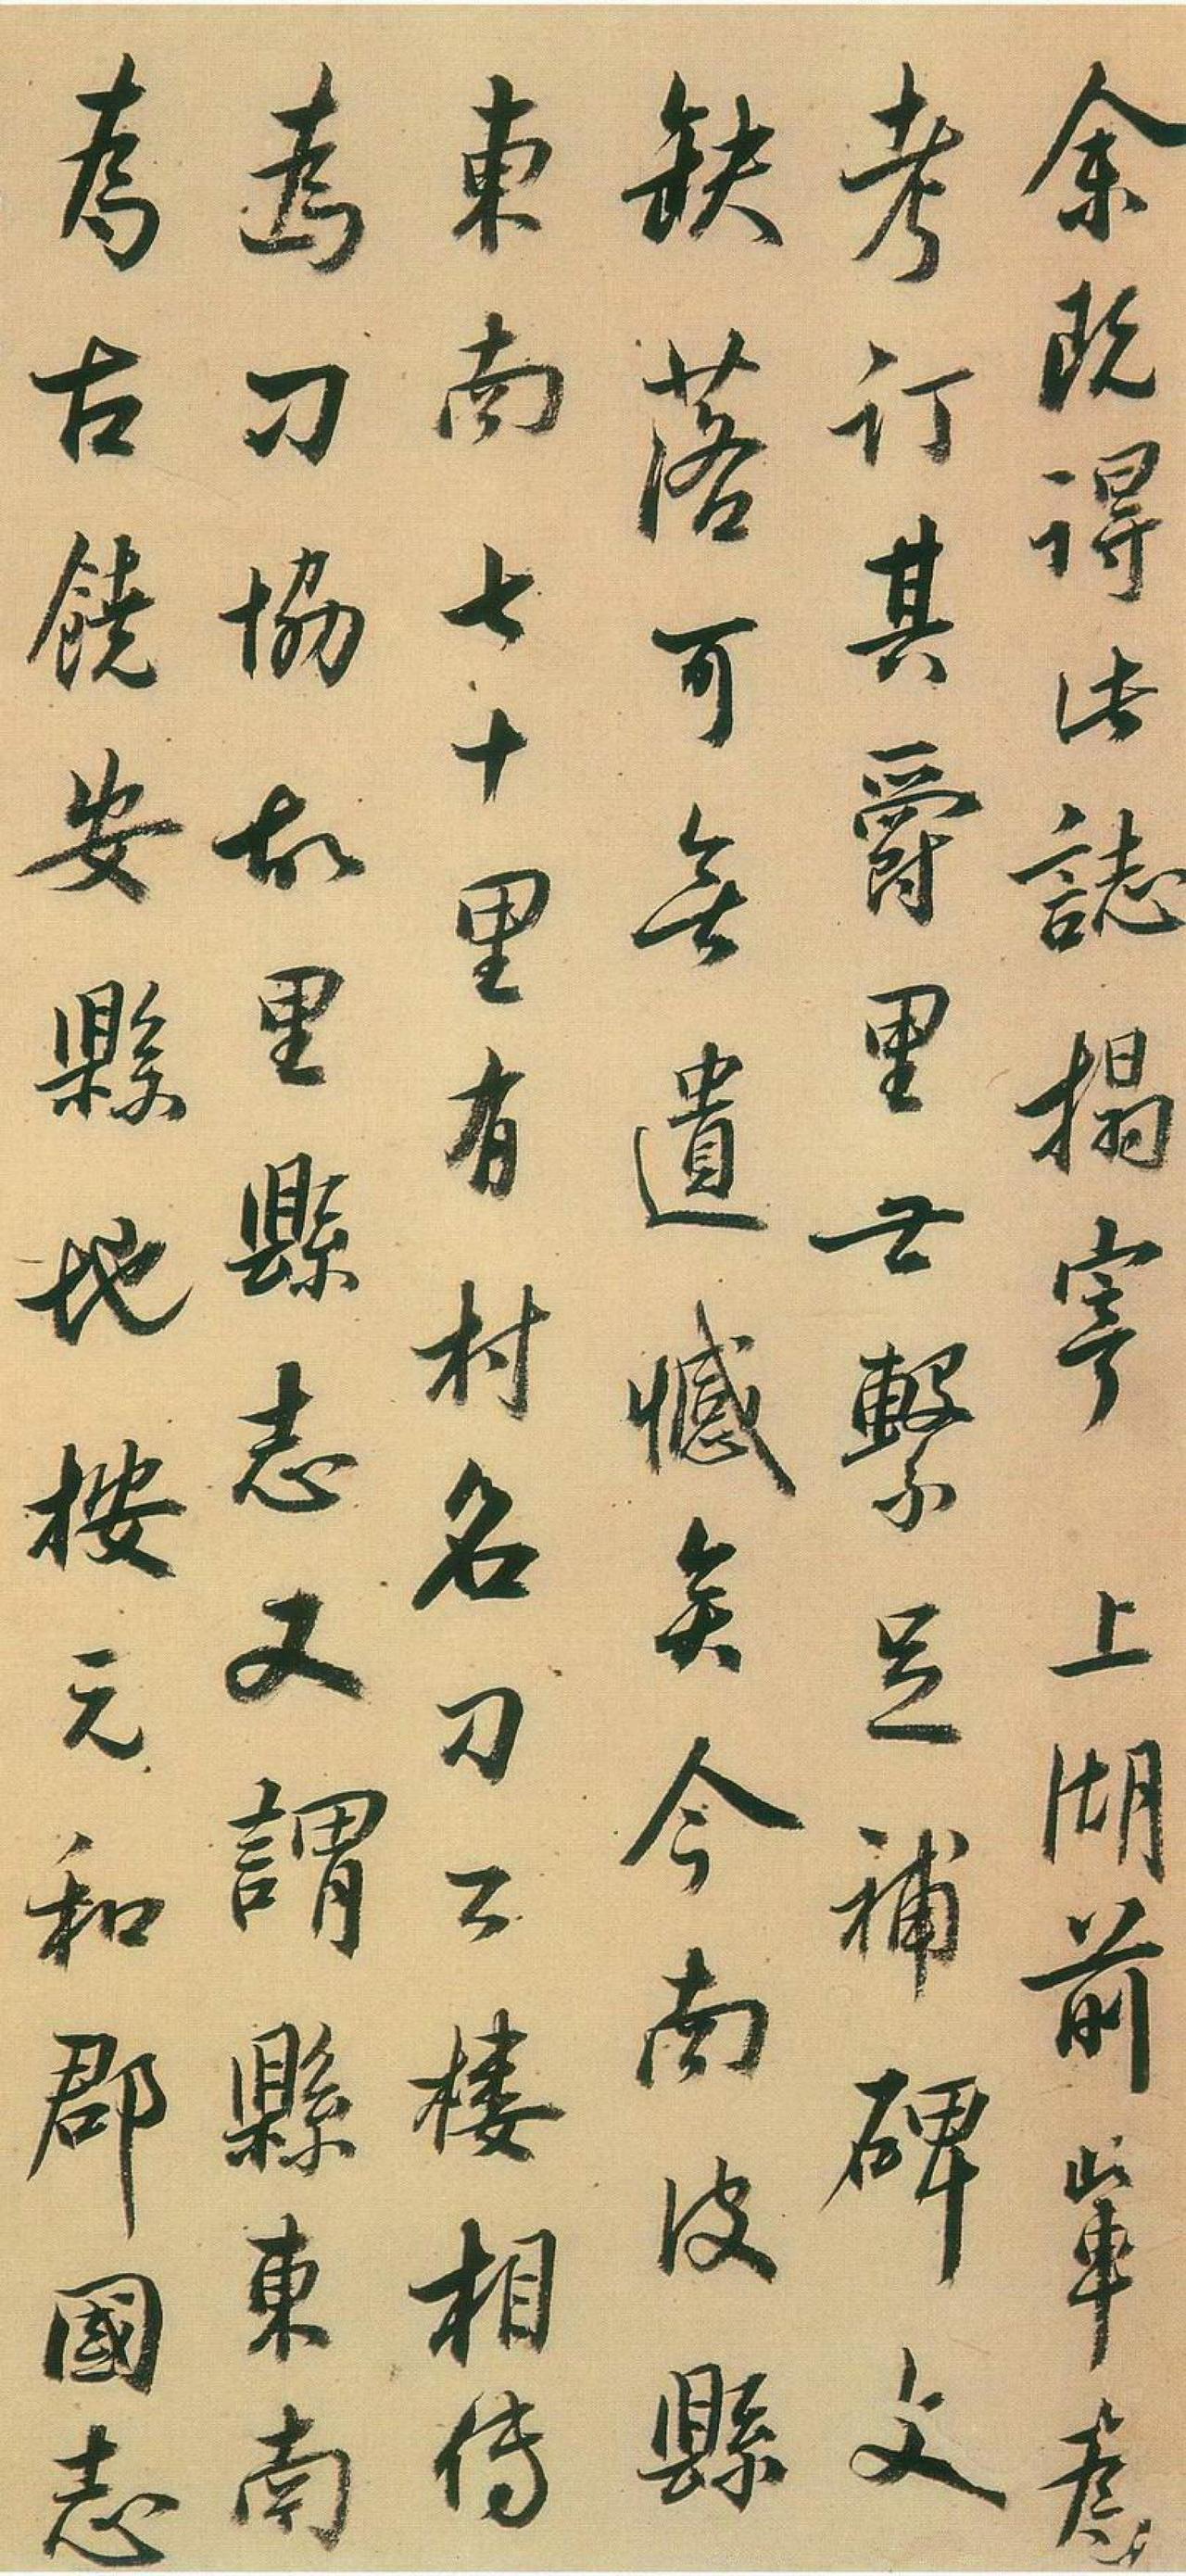 余既得此誌搨寄　上湖前輩爲
考訂其爵里世繫足補碑文
缺落可無遺憾矣今南皮縣
東南七十里有村名刁公樓相傳
為刁協故里縣志又謂縣東南
為古饒安縣地按元和郡國志